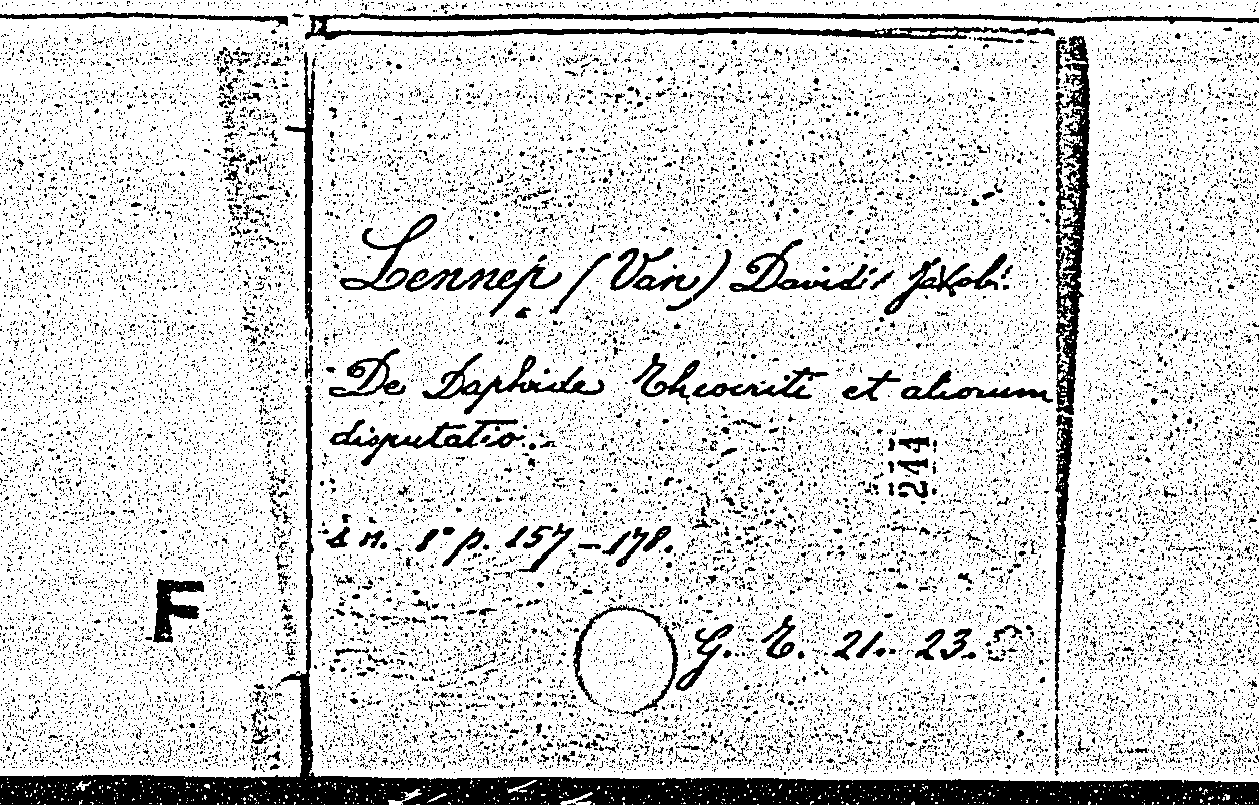 Lennep (Van) Davidis Jacobi.
De Daphnide Theocriti et aliorum
disputatio.
in. 8° p. 157-178.
244
F
G. E. 21. 23.